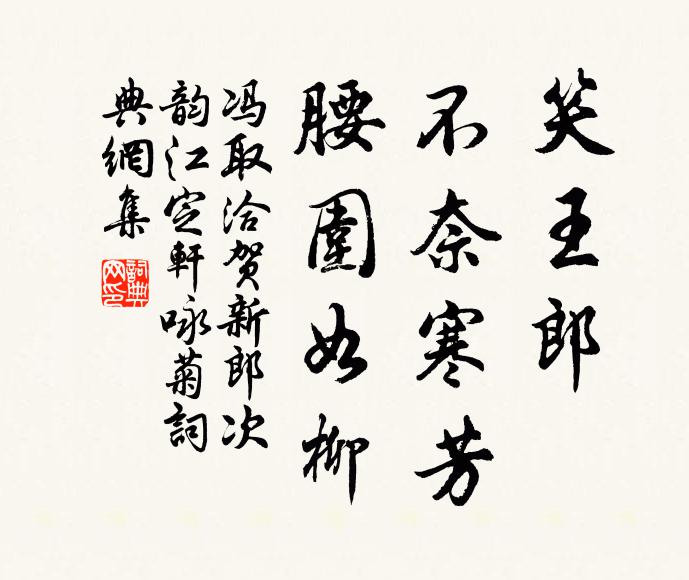 笑王郎
不奈寒芳
腰圍如柳
冯取洽贺新郎次
韵江定軒咏菊詞
典網集
詞典
网印